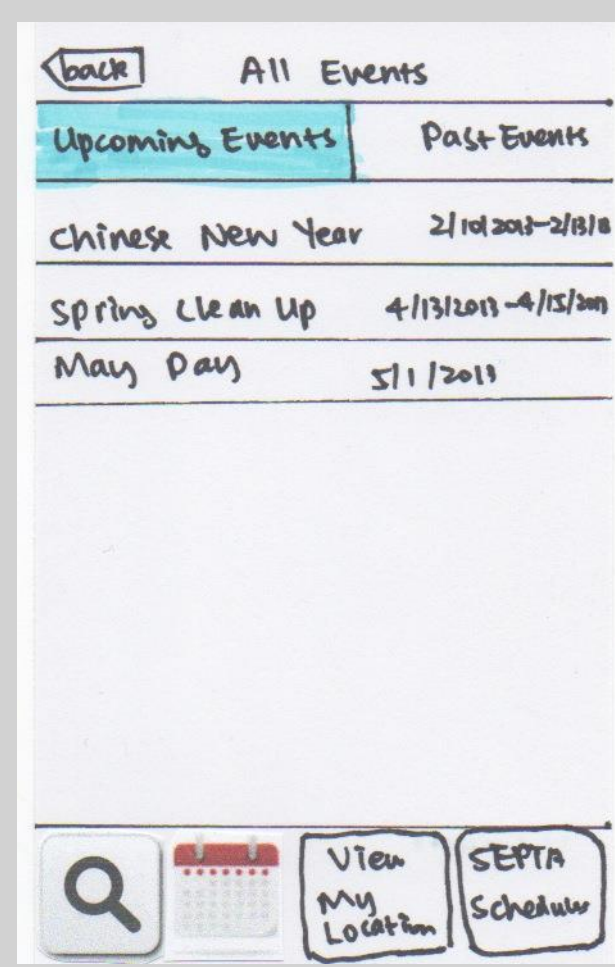 back
All Events
Upcoming Events
Past Events
Chinese New Year
2/10/2013-2/13/13
Spring Clean Up
4/13/2013-4/15/2013
May Day
5/1/2013
View
My
Location
SEPTA
Schedules